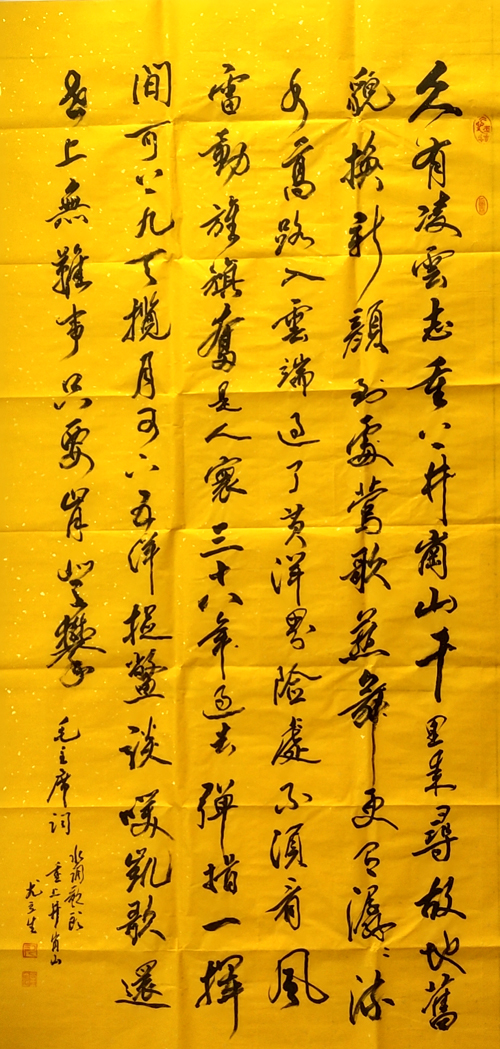 久有凌雲志重上井崗山千里來尋故地舊
貌換新顏到處鶯歌燕舞更有潺潺流
水高路入雲端過了黃洋界險處不須看風
雷動旌旗奮是人寰三十八年過去彈指一揮
間可上九天攬月可下五洋捉鱉談笑凱歌還
世上無難事只要肯登攀 毛主席詞
水調歌頭
重上井崗山